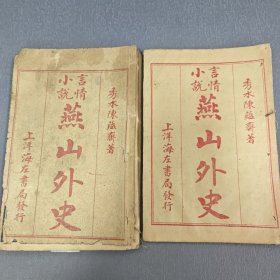 秀水陳蘊齋著
言情
小說
燕山外史
上洋海左書局發行
秀水陳蘊齋著
言情
小說
燕山外史
上洋海左書局發行